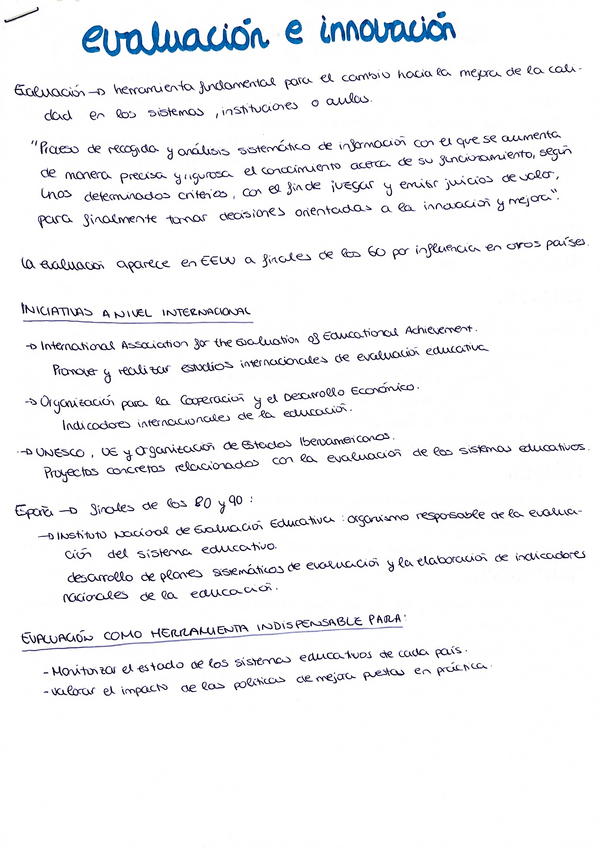 evaluación e innovación
Evaluación → herramienta fundamental para el cambio hacia la mejora de la cali-
dad en los sistemas, instituciones o aulas.
"Proceso de recogida y análisis sistemático de información con el que se aumenta
de manera precisa y rigurosa el conocimiento acerca de su funcionamiento, según
unos determinados criterios, con el fin de juzgar y emitir juicios de valor,
para finalmente tomar decisiones orientadas a la innovación y mejora".
La evaluación aparece en EEUU a finales de los 60 por influencia en otros países.
INICIATIVAS A NIVEL INTERNACIONAL
→ International Association for the Evaluation of Educational Achievement.
Promover y realizar estudios internacionales de evaluación educativa
→ Organización para la Cooperación y el Desarrollo Económico.
Indicadores internacionales de la educación.
→ UNESCO, UE y Organización de Estados Iberoamericanos.
Proyectos concretos relacionados con la evaluación de los sistemas educativos.
España → finales de los 80 y 90:
→ Instituto Nacional de Evaluación Educativa: organismo responsable de la evalua-
ción del sistema educativo.
desarrollo de planes sistemáticos de evaluación y la elaboración de indicadores
nacionales de la educación.
EVALUACIÓN COMO HERRAMIENTA INDISPENSABLE PARA:
- Monitorizar el estado de los sistemas educativos de cada país.
- valorar el impacto de las políticas de mejora puestas en práctica.